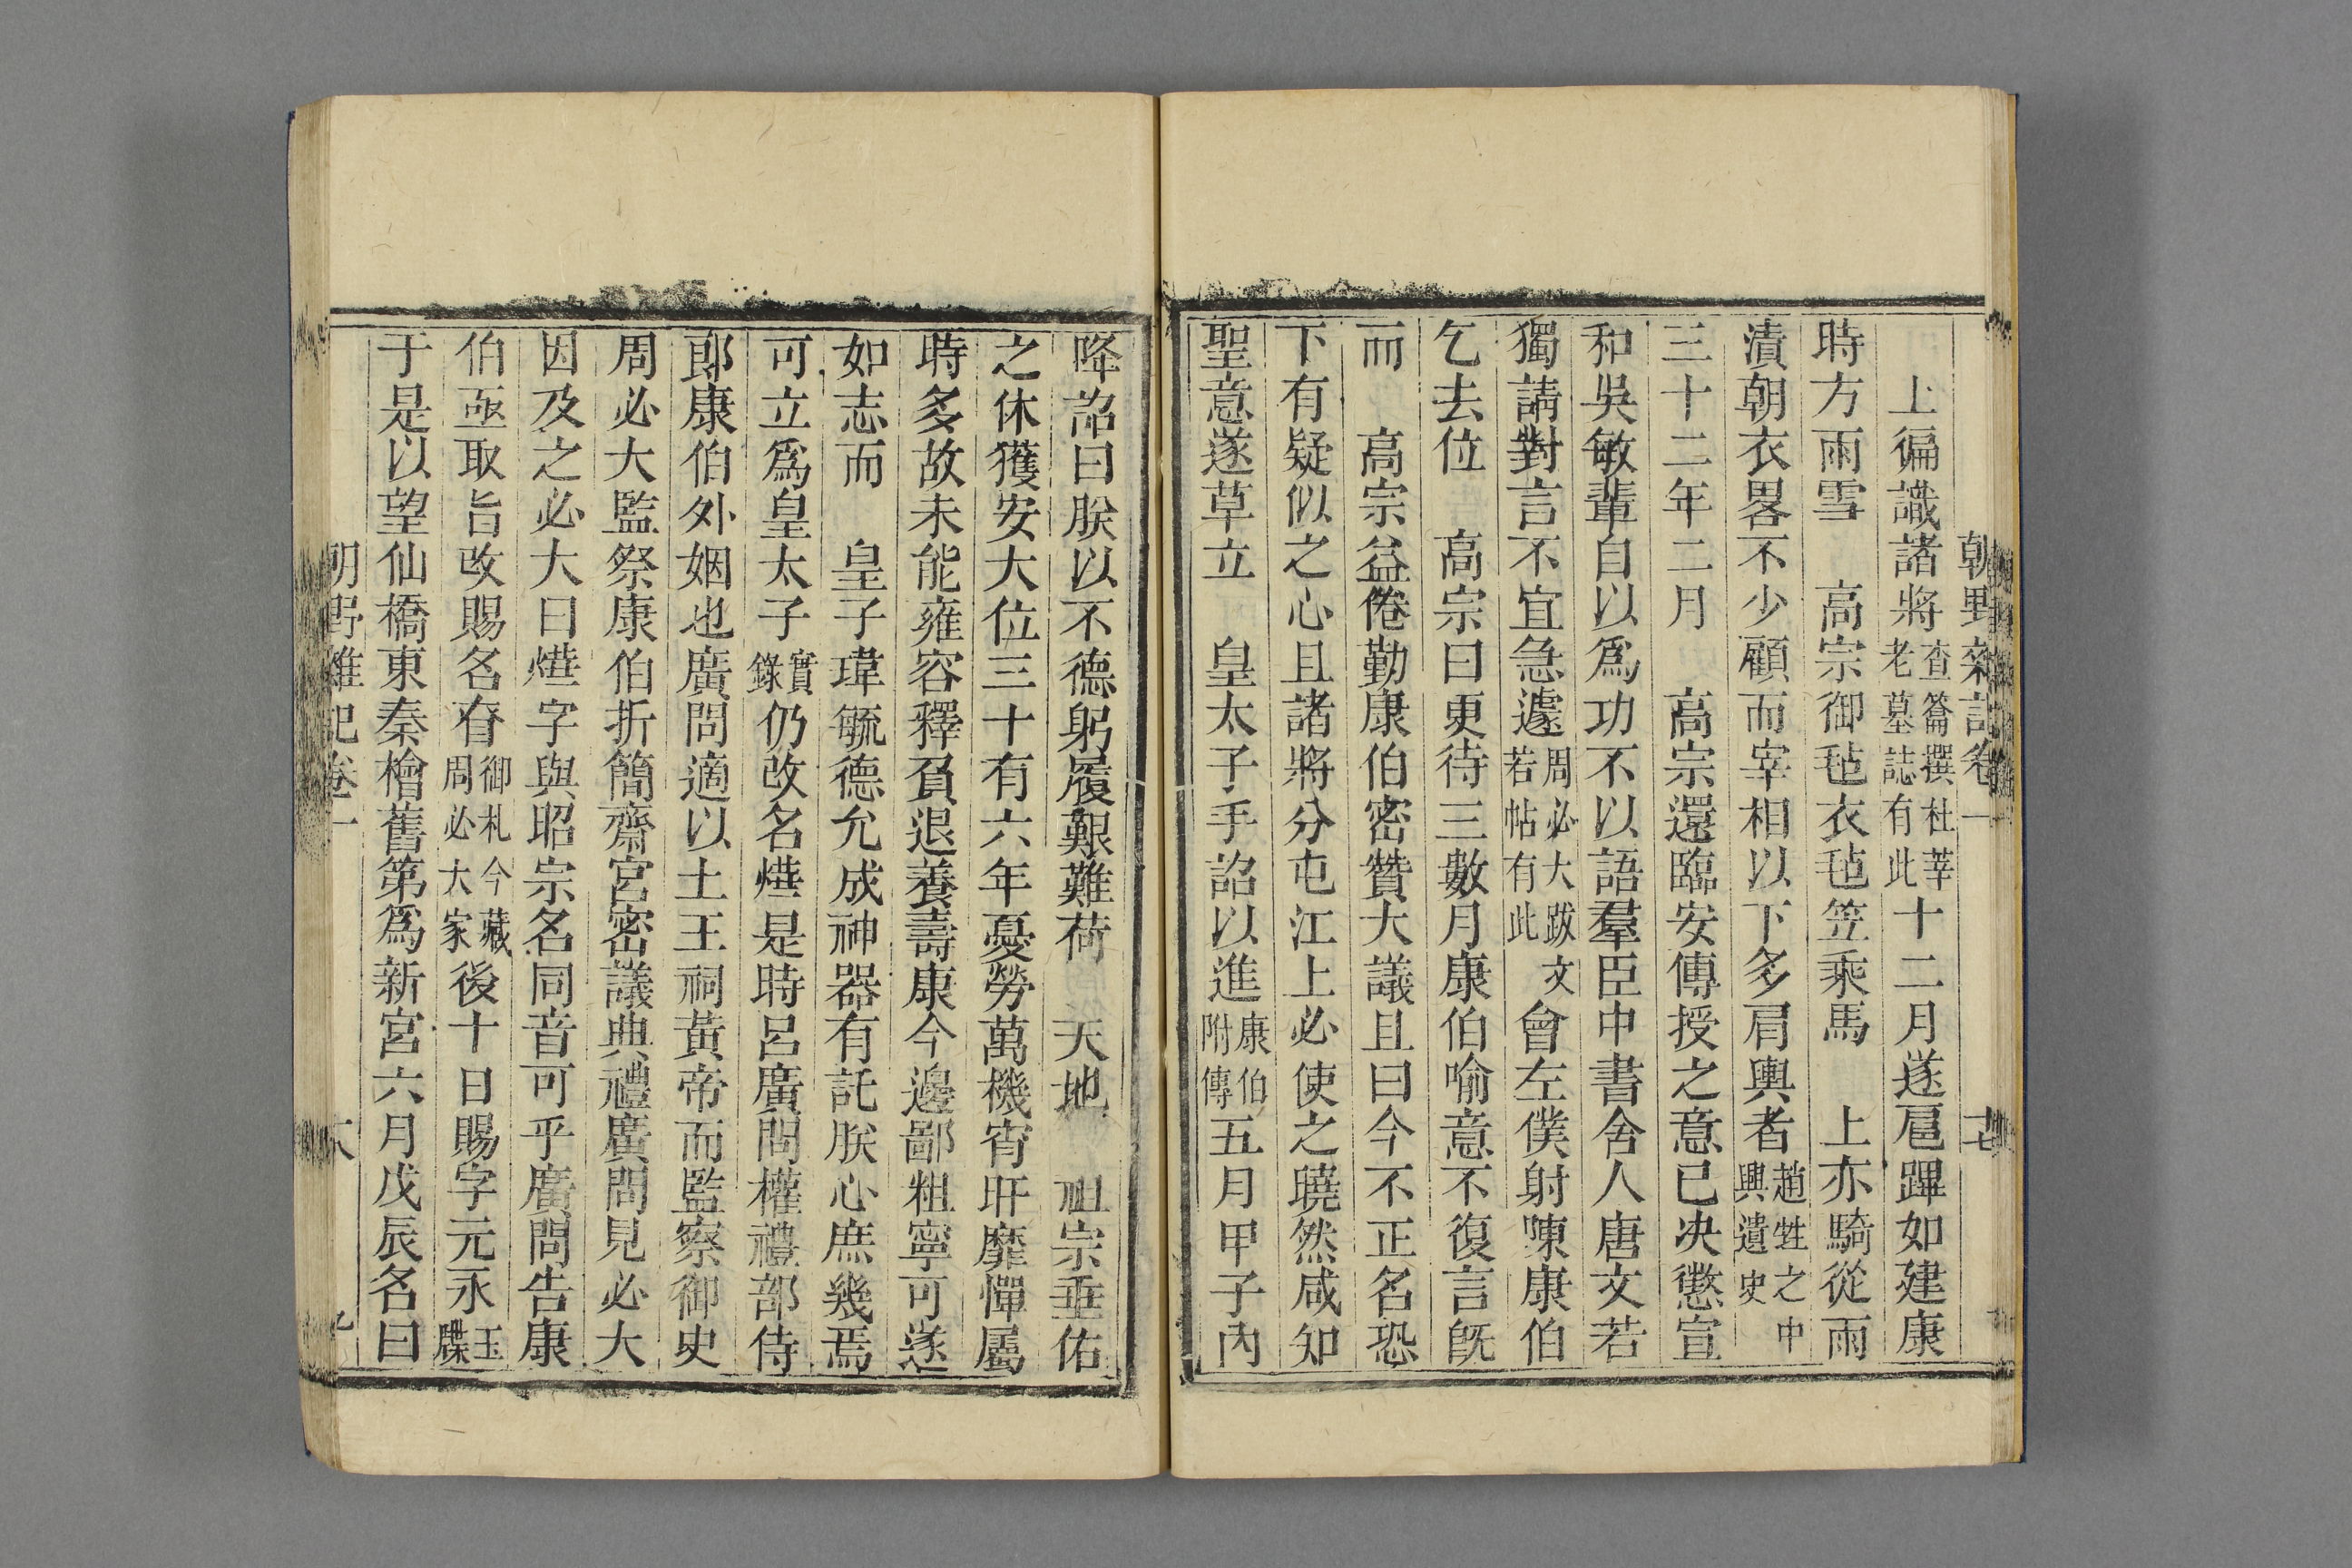 朝野雜記卷一
上徧識諸將查籥撰杜莘老墓誌有此十二月遂扈蹕如建康
時方雨雪 高宗御毡衣毡笠乘馬 上亦騎從雨
漬朝衣畧不少顧而宰相以下多肩輿者趙甡之中興遺史
三十二年二月 高宗還臨安傳授之意已决懲宣
和吳敏輩自以爲功不以語羣臣中書舍人唐文若
獨請對言不宜急遽周必大跋文若帖有此會左僕射陳康伯
乞去位 高宗曰更待三數月康伯喻意不復言旣
而 高宗益倦勤康伯密贊大議且曰今不正名恐
下有疑似之心且諸將分屯江上必使之曉然咸知
聖意遂草立 皇太子手詔以進康伯附傳五月甲子內
降詔曰朕以不德躬履艱難荷 天地 祖宗垂佑
之休獲安大位三十有六年憂勞萬機宵旰靡憚屬
時多故未能雍容釋負退養壽康今邊鄙粗寧可遂
如志而 皇子瑋毓德允成神器有託朕心庶幾焉
可立爲皇太子實錄仍改名㷸是時呂廣問權禮部侍
郎康伯外姻也廣問適以土王祠黃帝而監察御史
周必大監祭康伯折簡齋宮密議典禮廣問見必大
因及之必大曰㷸字與昭宗名同音可乎廣問告康
伯亟取旨改賜名昚御札今藏周必大家後十日賜字元永玉牒
于是以望仙橋東秦檜舊第爲新宮六月戊辰名曰